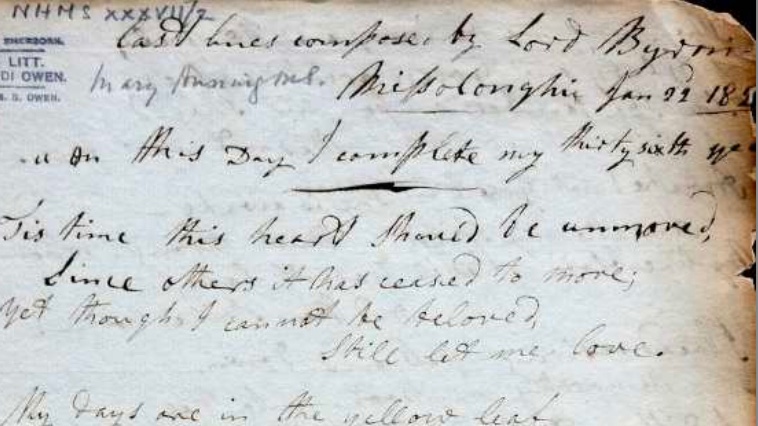 NHMS XXXVII/2
LITT.
DI OWEN.
S. OWEN.
Last lines composed by Lord Byron
Mary Anning
Missolonghi Jan 22d 182
On this Day I complete my thirty sixth ye
'Tis time this heart should be unmoved,
Since others it has ceased to move;
Yet though I cannot be beloved,
Still let me love.
My days are in the yellow leaf